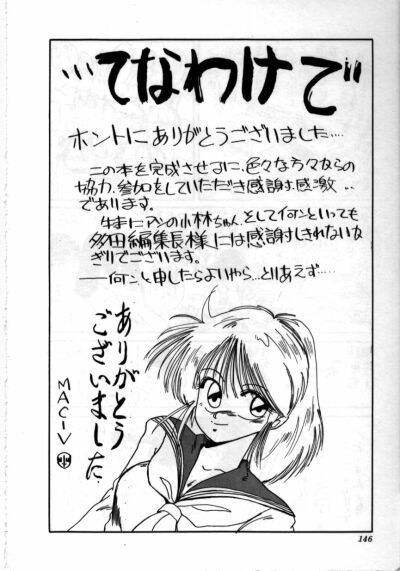 …てなわけで
ホントにありがとうございました……
この本を完成させるに、色々な方々からの
協力、参加をしていただき感謝、感激…
であります。
の小林ちゃん、そして何ンといっても
多田編集長様には感謝しきれないか
ぎりでございます。
――何ンと申したらよいやら…とりあえず……
ありがとう
ございました
MAC-V
146